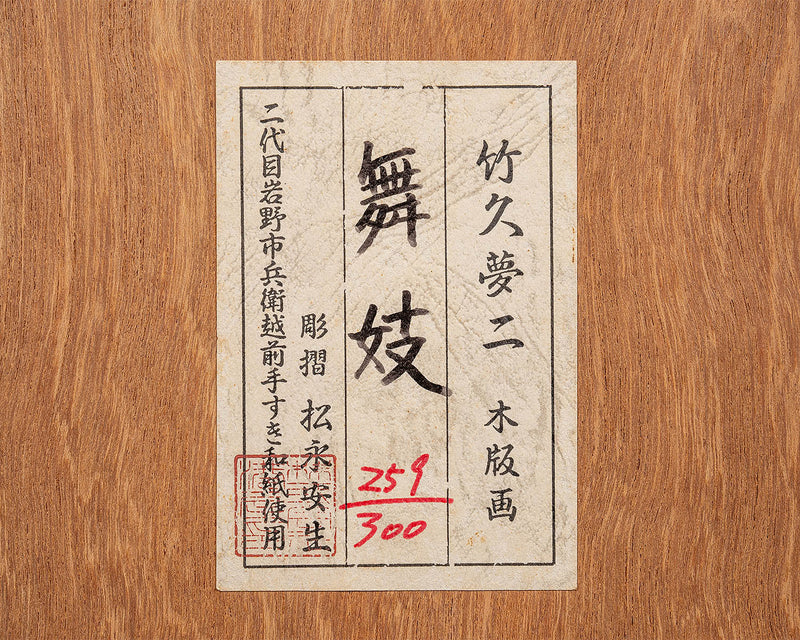 竹久夢二 木版画
舞妓
259
300
彫摺 松永安生
二代目岩野市兵衛越前手すき和紙使用